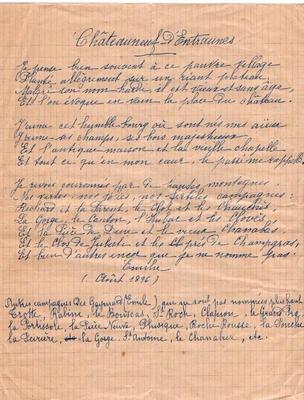 Châteauneuf D'Entraunes
Je pense bien souvent à ce pauvre village
Planté allègrement sur un riant plateau,
Malgré son nom hardi, il est vieux et sans âge,
Et l'on évoque en vain la place du château.
J'aime cet humble bourg où sont nés mes aïeux
J'aime ses champs, ses bois majestueux
Et l'antique maison et la vieille chapelle
Et tout ce qu'en mon cœur, le passé me rappelle.
Je revois couronnés par de hautes montagnes.
Nos vertes, nos jolies, nos fertiles campagnes :
Richard et la Parent, le Clot et les
La Gorge, le Content, l'Hubac et les
Et la Pièce de Dieu et le vieux Chanabas
Et le Clos de et les prés de
Et bien d'autres encor que je ne nomme pas.
Emile
(Août 1896)
Autres campagnes des (Emile) qui ne sont pas nommées plus haut
Trotte, Rabine, le Bouscas, St Roch, Clapion, le Grand Pré,
la la Pièce Neuve, Roche-Rousse, la
la la Gorge, St Antoine, le Chanabier, etc.